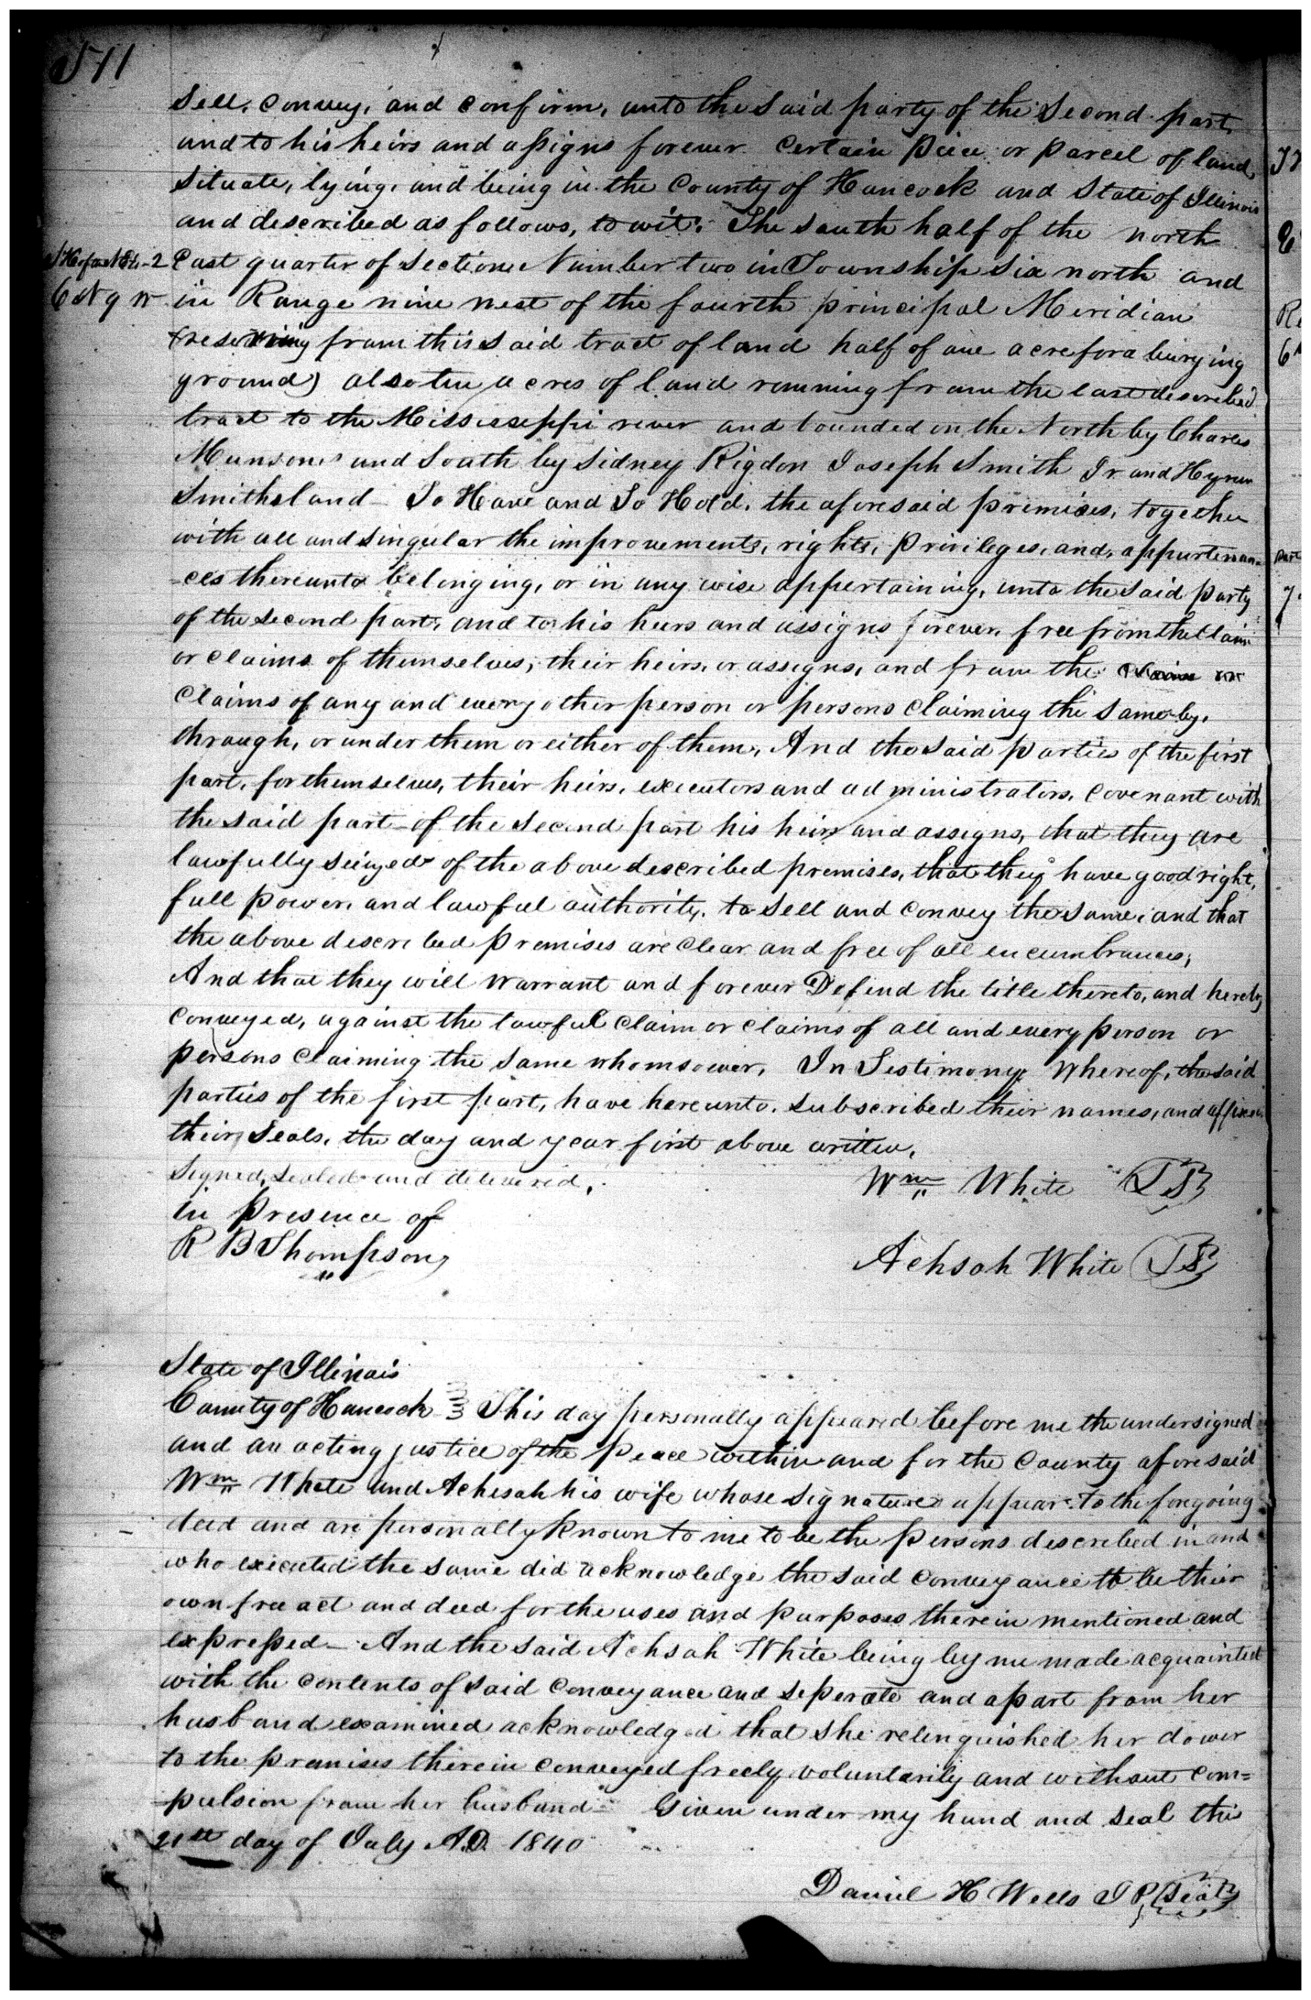 511
Sell, convey, and confirm, unto the said party of the Second part,
and to his heirs and assigns forever certain piece or parcel of land
situate, lying, and being in the County of Hancock and State of Illinois
and described as follows, to wit: The South half of the north
East quarter of section Number two in Township Six north and
in Range nine west of the fourth principal Meridian
(reserving from this said tract of land half of one acre for a burying
ground) also ten acres of land running from the last described
tract to the Mississeppi river and bounded on the North by Charles
Munson and South by Sidney Rigdon Joseph Smith Jr and Hyrum
Smiths land – To Have and To Hold, the aforesaid premises, together
with all and singular the improvements, rights, privileges, and, appurtenan-
-ces thereunto belonging, or in any wise appertaining, unto the said party
of the second part, and to his heirs and assigns forever, free from the claim
or claims of themselves, their heirs, or assigns, and from the claim or
claims of any and every other person or persons claiming the same by,
through, or under them or either of them, And the said parties of the first
part, for themselves, their heirs, executors and administrators, covenant with
the said part – of the Second part his heirs and assigns, that they are
lawfully seized of the above described premises, that they have good right,
full power, and lawful authority, to sell and convey the same, and that
the above described premises are clear and free of all encumbrances;
And that they will warrant and forever Defend the title thereto, and hereby
conveyed, against the lawful claim or claims of all and every person or
persons claiming the same whomsoever, In Testimony Whereof, the said
parties of the first part, have hereunto, subscribed their names, and affixed
their Seals, the day and year first above written,
Signed, sealed and delivered,
in presence of
R B Thompson
Wm White LS
Achsah White LS
State of Illinois
County of Hancock } This day personally appeared before me the undersigned
and an acting justice of the Peace within and for the County aforesaid
Wm White and Achesah his wife whose signatures appear To the forgoing
deed and are personally known to me to be the persons described in and
who executed the same did acknowledge the said conveyance to be their
own free act and deed for the uses and purposes therein mentioned and
expressed – And the said Achsah White being by me made acquainted
with the contents of said conveyance and seperate and apart from her
husband examined acknowledged that she relenquished her dower
to the premises therein conveyed freely voluntarily and without com=
-pulsion from her husband – Given under my hand and seal this
21th day of July A.D. 1840
Daniel H Wells J P, Seal